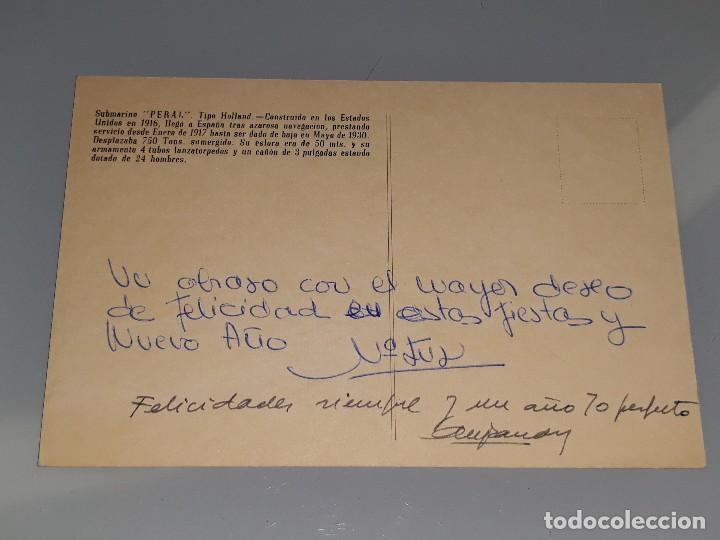 Submarino "PERAL". Tipo Holland.—Construido en los Estados
Unidos en 1916, llegó a España tras azarosa navegación, prestando
servicio desde Enero de 1917 hasta ser dado de baja en Mayo de 1930.
Desplazaba 750 Tons. sumergido. Su eslora era de 50 mts. y su
armamento 4 tubos lanzatorpedos y un cañón de 3 pulgadas estando
dotado de 24 hombres.
Un abrazo con el mayor deseo
de felicidad en estas fiestas y
Nuevo Año
Felicidades siempre y un año 70 perfecto
todocoleccion.net